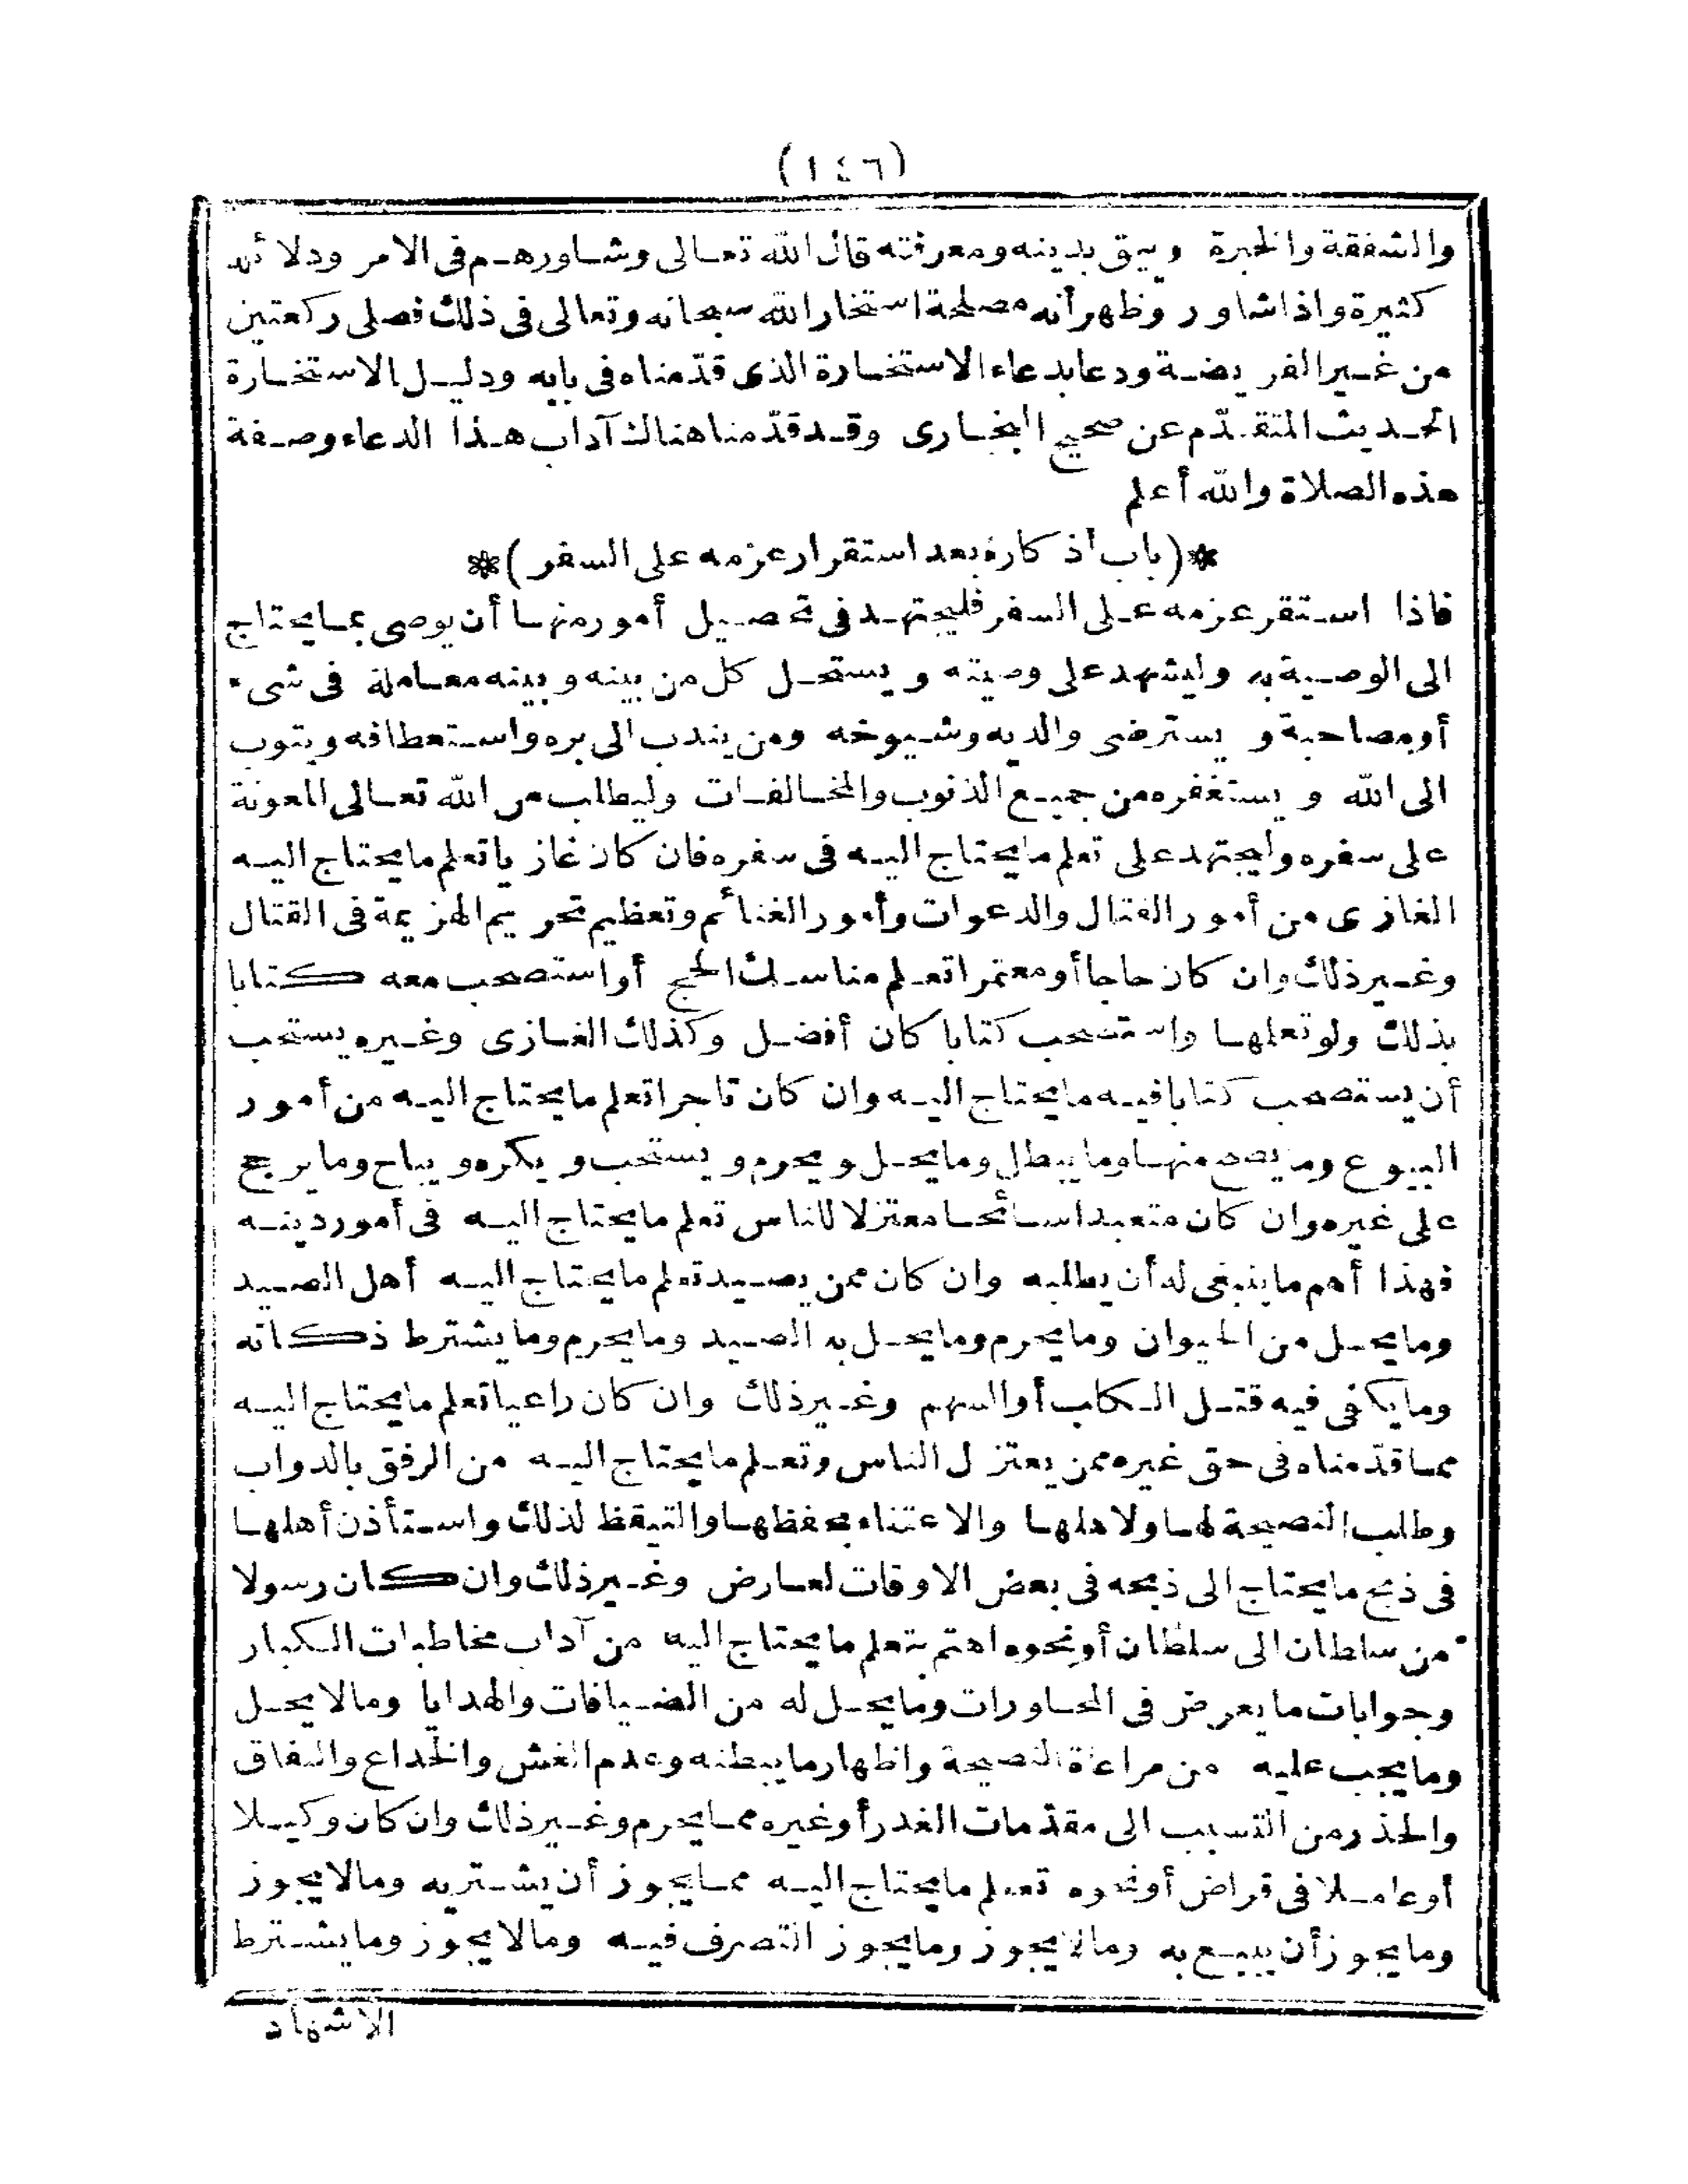 (١٤٦)
والشفقة والخبرة ويثق بدينه ومعرفته قال الله تعالى وشاورهم فى الامر ودلائله
كثيرة واذا شاور وظهر أنه مصلحة استخار الله سبحانه وتعالى فى ذلك فصلى ركعتين
من غير الفريضة ودعا بدعاء الاستخارة الذى قدّمناه فى بابه ودليل الاستخارة
الحديث المتقدّم عن صحيح البخارى وقد قدّمنا هناك آداب هذا الدعاء وصفة
هذه الصلاة والله أعلم
*(باب أذكاره بعد استقرار عزمه على السفر)*
فاذا استقر عزمه على السفر فليجتهد فى تحصيل أمور منها أن يوصى بما يحتاج
الى الوصية به وليشهد على وصيته ويستحل كل من بينه وبينه معاملة فى شىء
أو مصاحبة ويسترضى والديه وشيوخه ومن يندب الى بره واستعطافه ويتوب
الى الله ويستغفره من جميع الذنوب والمخالفات وليطلب من الله تعالى المعونة
على سفره وليجتهد على تعلم ما يحتاج اليه فى سفره فان كان غازيا تعلم ما يحتاج اليه
الغازى من أمور القتال والدعوات وأمور الغنائم وتعظيم تحريم الهزيمة فى القتال
وغير ذلك وان كان حاجا أو معتمرا تعلم مناسك الحج أو استصحب معه كتابا
بذلك ولو تعلمها واستصحب كتابا كان أفضل وكذلك الغازى وغيره يستحب
أن يستصحب كتابا فيه ما يحتاج اليه وان كان تاجرا تعلم ما يحتاج اليه من أمور
البيوع وما يصح منها وما يبطل وما يحل ويحرم ويستحب ويكره ويباح وما يرجح
على غيره وان كان متعبدا سائحا معتزلا للناس تعلم ما يحتاج اليه فى أمور دينه
فهذا أهم ما ينبغى له أن يطلبه وان كان ممن يصيد تعلم ما يحتاج اليه أهل الصيد
وما يحل من الحيوان وما يحرم وما يحل به الصيد وما يحرم وما يشترط ذكاته
وما يكفى فيه قتل الكلب أو السهم وغير ذلك وان كان راعيا تعلم ما يحتاج اليه
مما قدّمناه فى حق غيره ممن يعتزل الناس وتعلم ما يحتاج اليه من الرفق بالدواب
وطلب النصيحة لها ولاهلها والاعتناء بحفظها والتيقظ لذلك واستأذن أهلها
فى ذبح ما يحتاج الى ذبحه فى بعض الاوقات لعارض وغير ذلك وان كان رسولا
من سلطان الى سلطان أو نحوه اهتم بتعلم ما يحتاج اليه من آداب مخاطبات الكبار
وجوابات ما يعرض فى المحاورات وما يحل له من الضيافات والهدايا وما لا يحل
وما يجب عليه من مراعاة النصيحة واظهار ما يبطنه وعدم الغش والخداع والنفاق
والحذر من التسبب الى مقدّمات الغدر أو غيره مما يحرم وغير ذلك وان كان وكيلا
أو عاملا فى قراض أو نحوه تعلم ما يحتاج اليه مما يجوز أن يشتريه وما لا يجوز
وما يجوز أن يبيع به وما لا يجوز وما يجوز التصرف فيه وما لا يجوز وما يشترط
الاشهاد